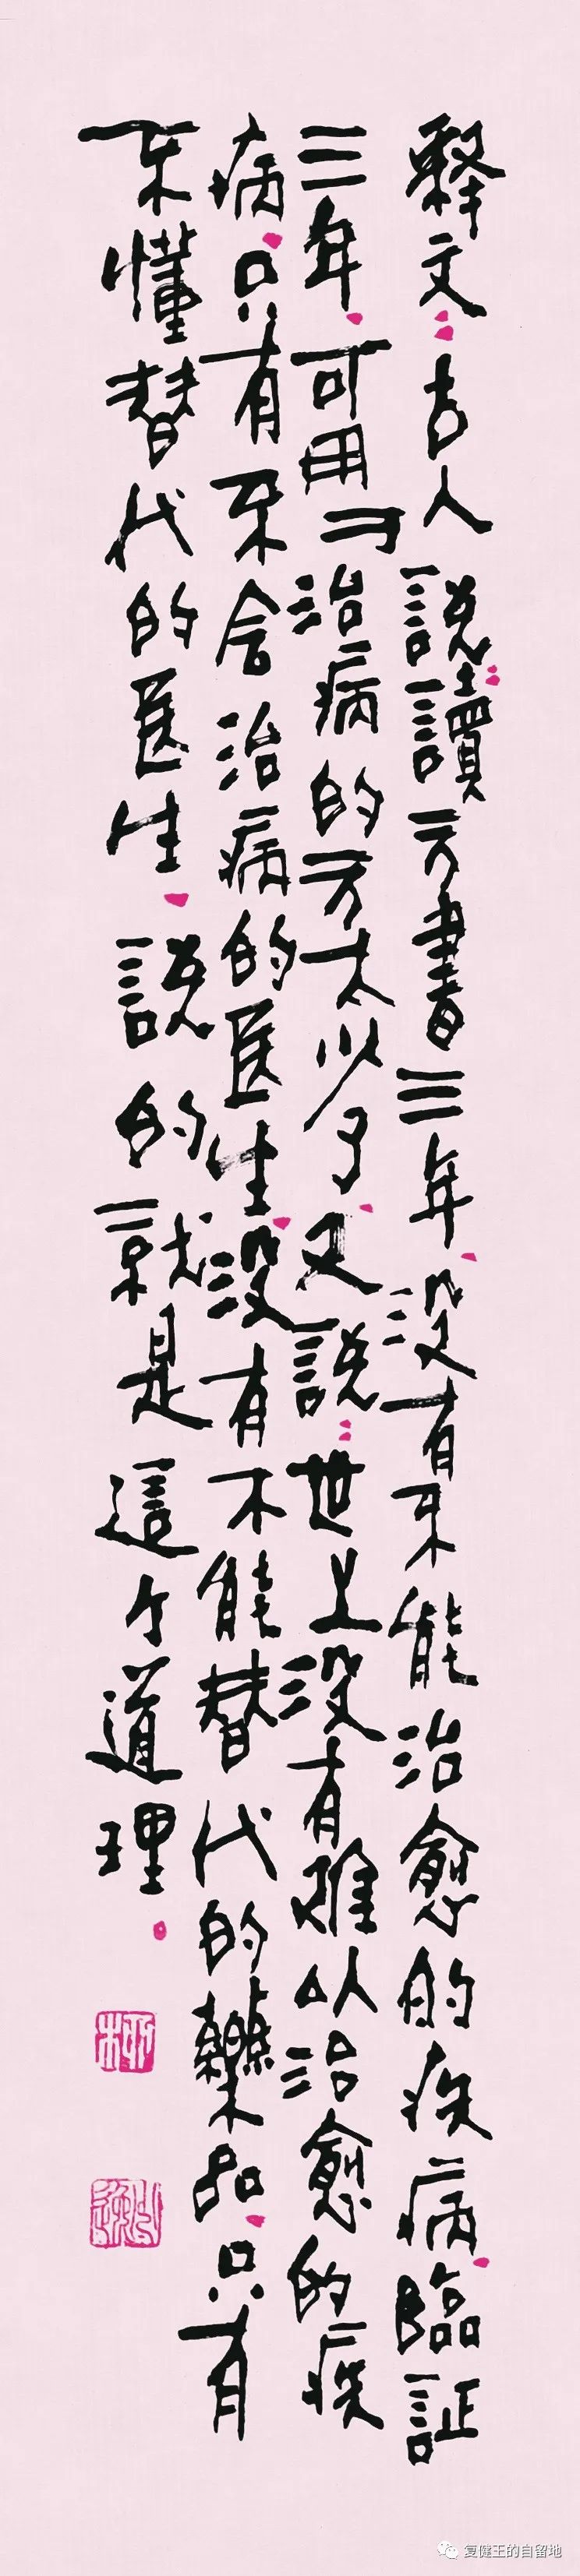 釋文：古人説：讀方書三年，没有不能治愈的疾病，臨証
三年，可用于治病的方太少了，又説：世上没有難以治愈的疾
病，只有不会治病的医生，没有不能替代的藥品，只有
不懂替代的医生，説的就是這个道理。
复健王的自留地